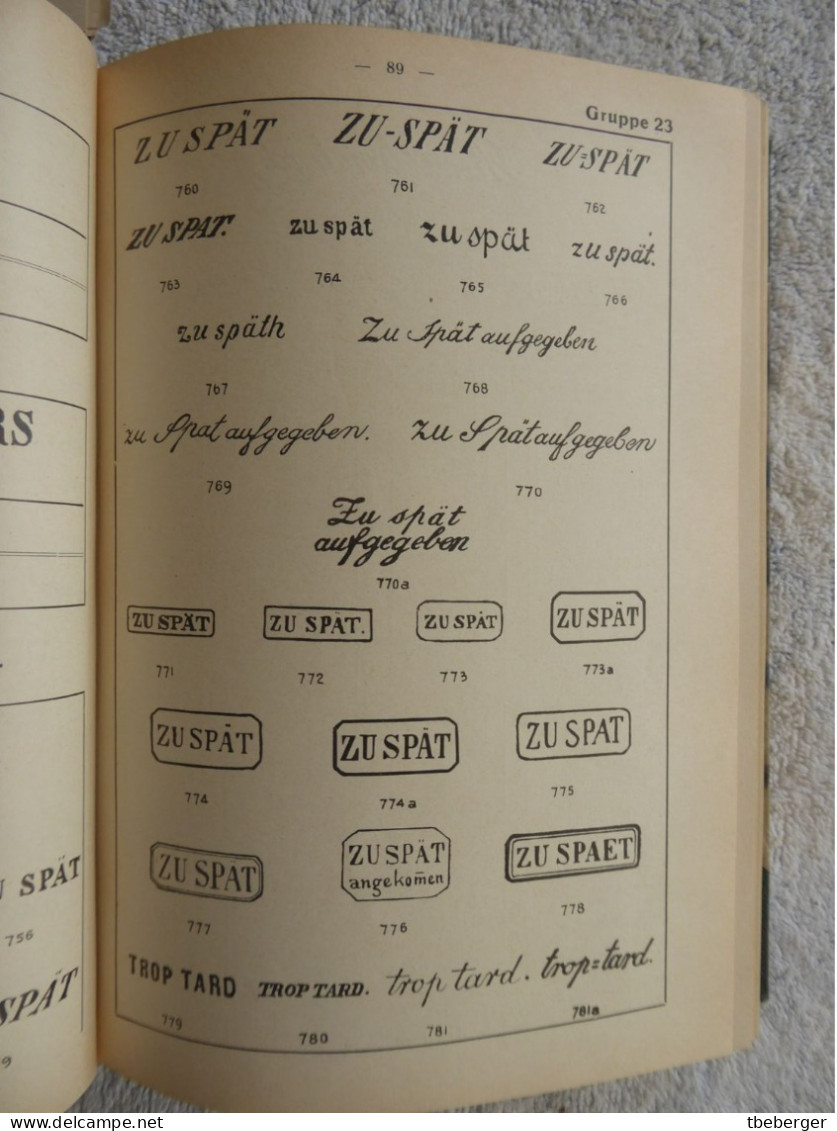 — 89 —
Gruppe 23
ZU SPÄT ZU-SPÄT ZU=SPÄT
760 761 762
ZU SPAT. zu spät zu spät zu spät.
763 764 765 766
zu späth Zu Spät aufgegeben
767 768
zu Spat aufgegeben. zu Spät aufgegeben
769 770
Zu spät
aufgegeben
770a
ZU SPÄT ZU SPÄT. ZU SPÄT ZU SPÄT
771 772 773 773a
ZU SPÄT ZU SPÄT ZU SPAT
774 774a 775
ZU SPAT ZU SPÄT ZU SPAET
angekom̄en
777 776 778
TROP TARD TROP TARD. trop tard. trop=tard.
779 780 781 781a
RS
U SPÄT
756
SPÄT
9
delcampe.net
tbeberger